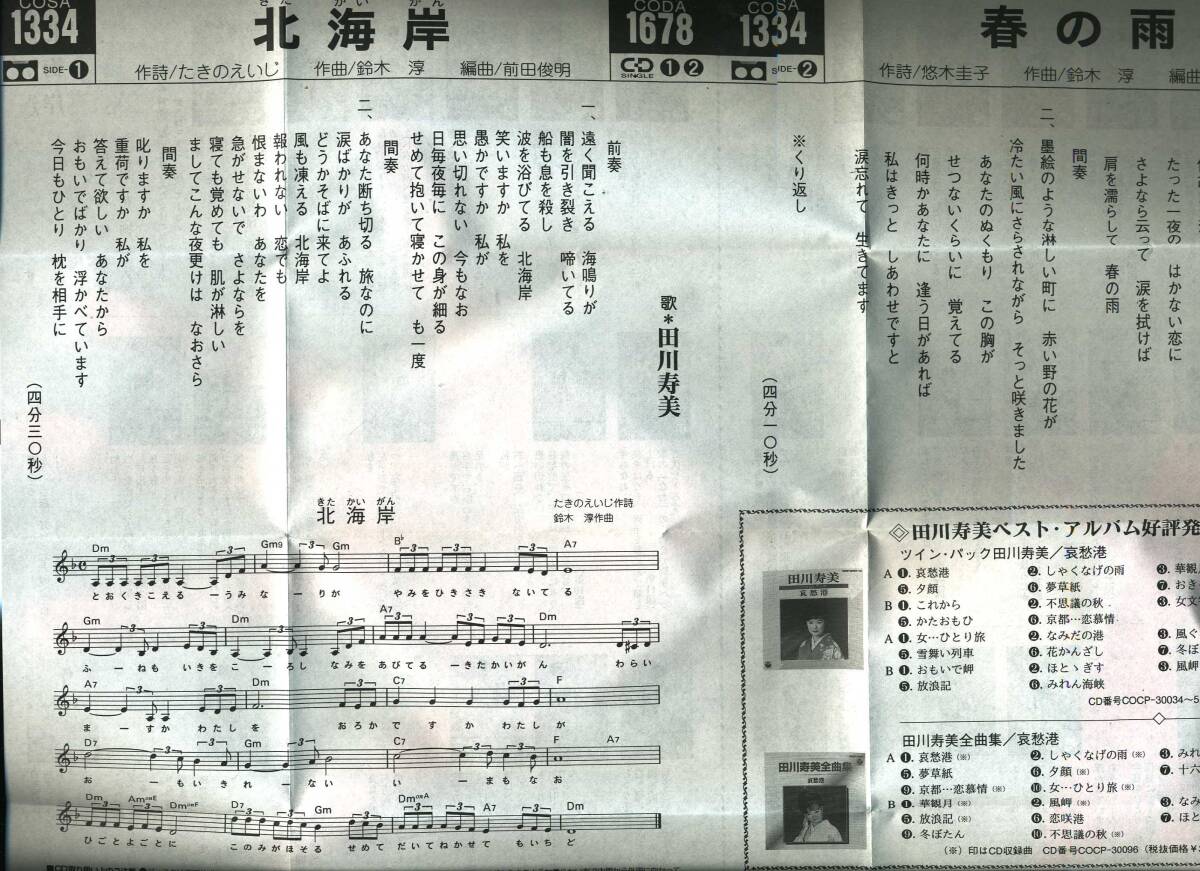 COSA
1334
SIDE-❶
北海岸
きた かい がん
作詩/たきのえいじ 作曲/鈴木 淳 編曲/前田俊明
CODA
1678
CD SINGLE ❶❷
COSA
1334
SIDE-❷
春の雨
作詩/悠木圭子 作曲/鈴木 淳 編曲
歌＊田川寿美
前奏
一、遠く聞こえる 海鳴りが
闇を引き裂き 啼いてる
船も息を殺し
波を浴びてる 北海岸
笑いますか 私を
愚かですか 私が
思い切れない 今もなお
日毎夜毎に この身が細る
せめて抱いて寝かせて も一度
間奏
二、あなた断ち切る 旅なのに
涙ばかりが あふれる
どうかそばに来てよ
風も凍える 北海岸
報われない 恋でも
恨まないわ あなたを
急がせないで さよならを
寝ても覚めても 肌が淋しい
ましてこんな夜更けは なおさら
間奏
叱りますか 私を
重荷ですか 私が
答えて欲しい あなたから
おもいでばかり 浮かべています
今日もひとり 枕を相手に
(四分三〇秒)
たった一夜の はかない恋に
さよなら云って 涙を拭けば
肩を濡らして 春の雨
間奏
二、墨絵のような淋しい町に 赤い野の花が
冷たい風にさらされながら そっと咲きました
あなたのぬくもり この胸が
せつないくらいに 覚えてる
何時かあなたに 逢う日があれば
私はきっと しあわせですと
涙忘れて 生きてます
※くり返し
(四分一〇秒)
きた かい がん
北海岸
たきのえいじ作詩
鈴木 淳作曲
Dm Gm9 Gm B♭ A7
とおくきこえる ーうみなーりが やみをひきさき ないてる
Gm Dm A7 Dm
ふーねも いきをこーろし なみをあびてる ーきたかいがん わらい
A7 Dm C7 F
まーすか わたしを おろかですか わたしが
D7 Gm C7 F A7
おーもいきれーない いーまもなお
Dm AmonE DmonF D7 Gm DmonA A7 Dm
ひごとよごとに このみがほそる せめて だいてねかせて もいちど
◇田川寿美ベスト・アルバム好評発
ツイン・パック田川寿美／哀愁港
A ❶. 哀愁港 ❷. しゃくなげの雨 ❸. 華観月
❺. 夕顔 ❻. 夢草紙 ❼. おき
B ❶. これから ❷. 不思議の秋 ❸. 女文字
❺. かたおもひ ❻. 京都…恋慕情
A ❶. 女…ひとり旅 ❷. なみだの港 ❸. 風ぐ
❺. 雪舞い列車 ❻. 花かんざし ❼. 冬ぼ
B ❶. おもいで岬 ❷. ほとゝぎす ❸. 風岬
❺. 放浪記 ❻. みれん海峡
CD番号COCP-30034〜5
田川寿美全曲集／哀愁港
A ❶. 哀愁港(※) ❷. しゃくなげの雨(※) ❸. みれ
❺. 夢草紙 ❻. 夕顔(※) ❼. 十六
❾. 京都…恋慕情(※) ❿. 女…ひとり旅(※)
B ❶. 華観月(※) ❷. 風岬(※) ❸. なみ
❺. 放浪記(※) ❻. 恋咲港 ❼. ほと
❾. 冬ぼたん ❿. 不思議の秋(※)
(※)印はCD収録曲 CD番号COCP-30096 (税抜価格¥
田川寿美
哀愁港
田川寿美全曲集
哀愁港